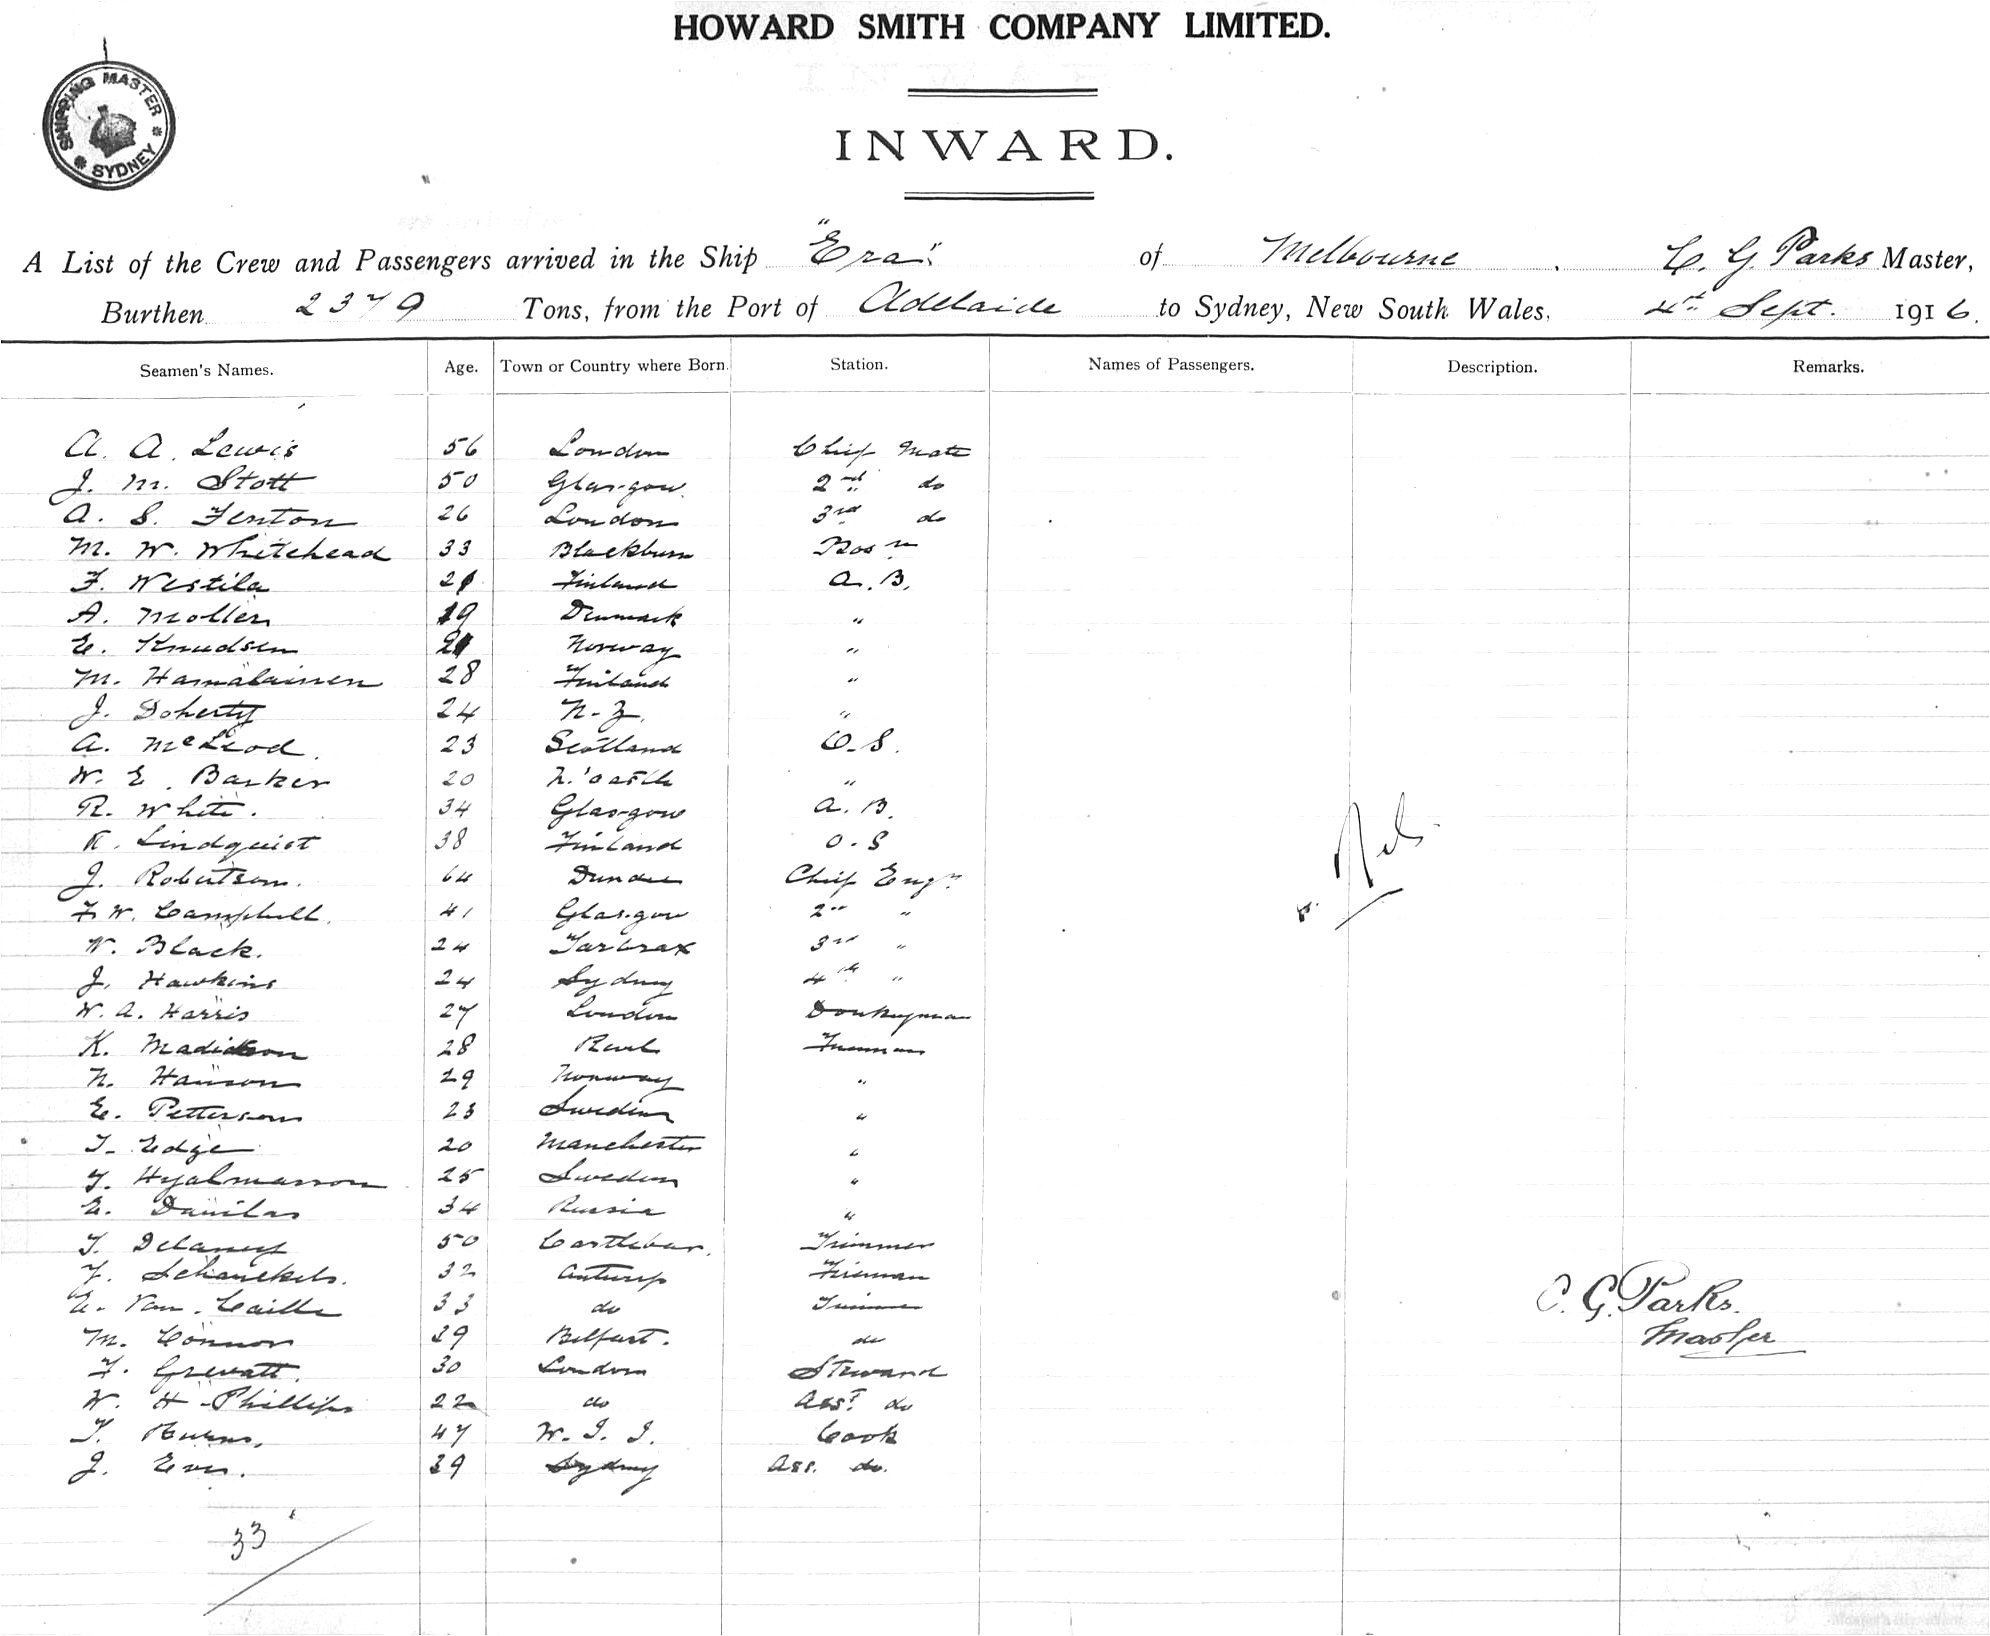 HOWARD SMITH COMPANY LIMITED.
SHIPPING MASTER SYDNEY
INWARD.
A List of the Crew and Passengers arrived in the Ship "Era" of Melbourne, C. G. Parks Master,
Burthen 2379 Tons, from the Port of Adelaide to Sydney, New South Wales, 4th Sept. 1916.
Seamen's Names. Age. Town or Country where Born. Station. Names of Passengers. Description. Remarks.
A. A. Lewis 56 London Chief Mate
J. M. Stott 50 Glasgow 2nd do
A. S. Fenton 26 London 3rd do
M. W. Whitehead 33 Blackburn Bosn
F. Westila 21 Finland A.B.
A. Moller 19 Denmark "
E. Knudsen 21 Norway "
M. Hamalainen 28 Finland "
J. Doherty 24 N.Z. "
A. McLeod 23 Scotland O.S.
W. E. Barker 20 N'castle "
R. White. 34 Glasgow A.B.
K. Lindquist 38 Finland O.S
J. Robertson. 64 Dundee Chief Engr
F. W. Campbell. 41 Glasgow 2nd "
W. Black. 24 Tarbrax 3rd "
J. Hawkins 24 Sydney 4th "
W. A. Harris 27 London Donkeyman
K. 28 Fireman
N. Hanson 29 Norway "
E. Petterson 23 Sweden "
T. Edge 20 Manchester "
Hjalmarson 25 Sweden "
E. Danilas 34 Russia "
T. Delaney 50 Castlebar. Trimmer
32 Antwerp Fireman
Van Caille 33 do Trimmer
M. Connor 29 Belfast. do
F. Grevatt. 30 London Steward
W. H. Phillips 22 do Asst do
T. Burns. 47 W. I. I. Cook
J. 39 Sydney Ass. do.
Nil
C. G. Parks.
Master
33